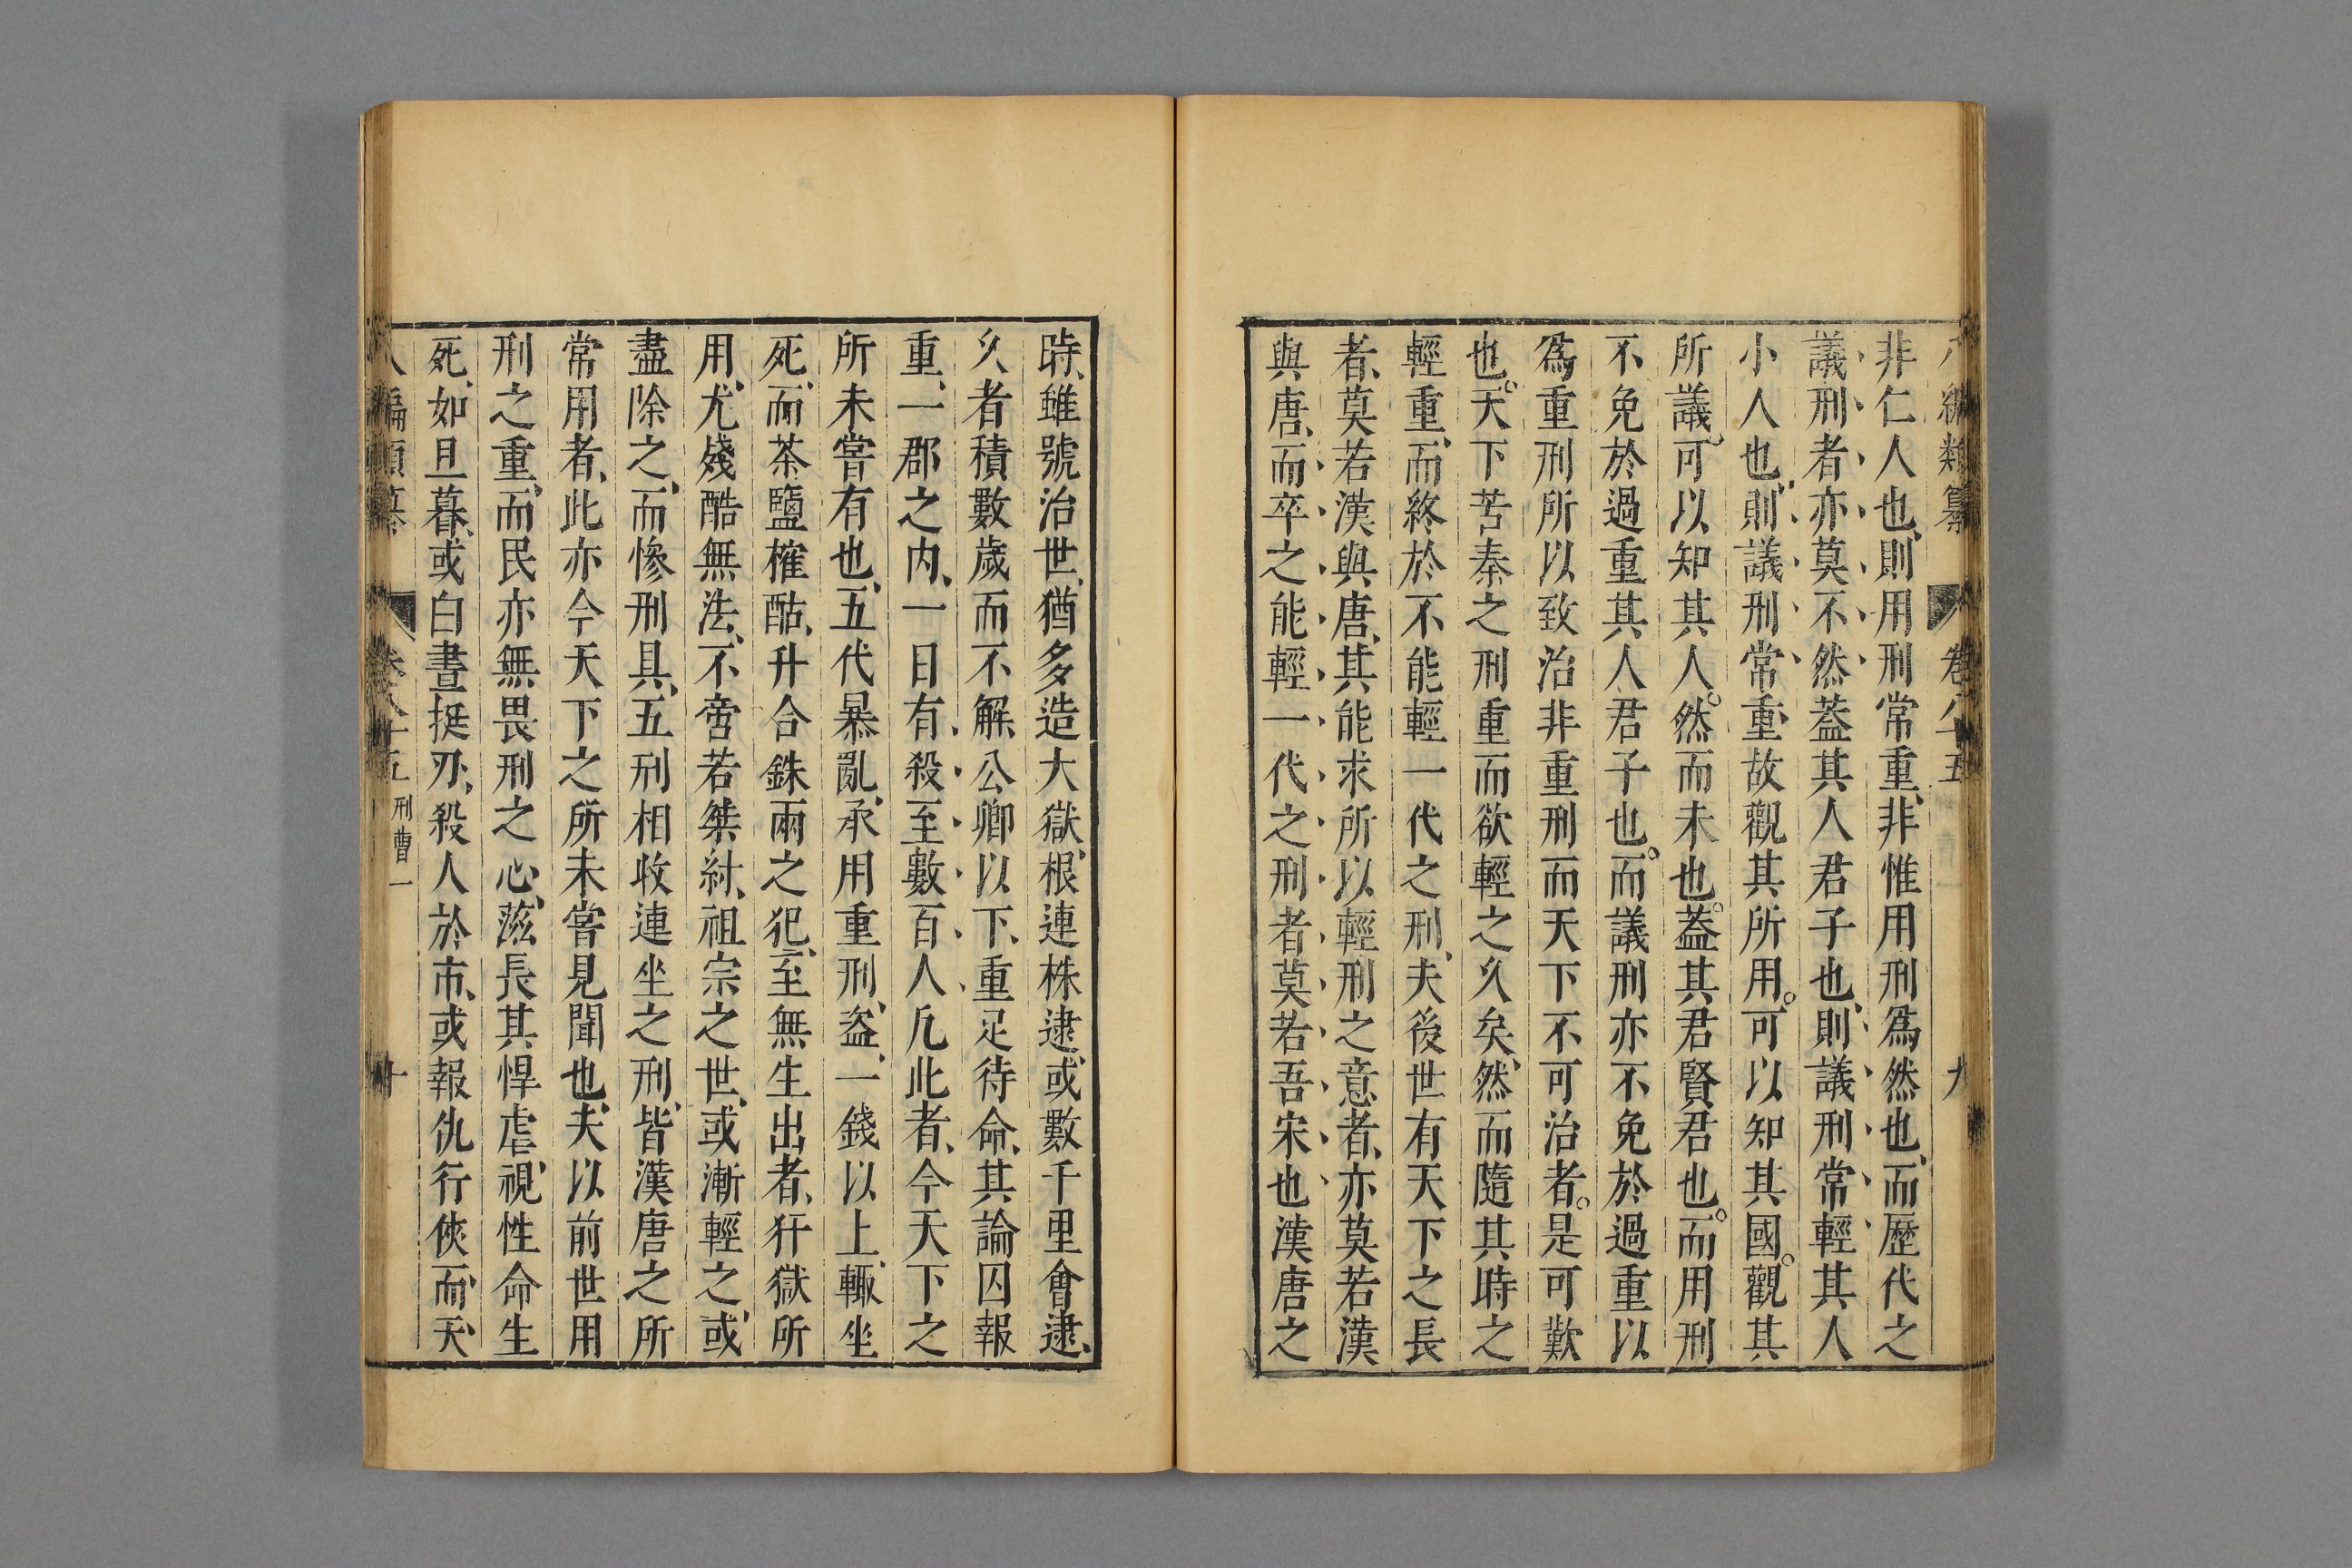 八編類纂 卷八十五 九
非仁人也則用刑常重非惟用刑爲然也而歷代之
議刑者亦莫不然蓋其人君子也則議刑常輕其人
小人也則議刑常重故觀其所用可以知其國觀其
所議可以知其人然而未也蓋其君賢君也而用刑
不免於過重其人君子也而議刑亦不免於過重以
爲重刑所以致治非重刑而天下不可治者是可歎
也天下苦秦之刑重而欲輕之久矣然而隨其時之
輕重而終於不能輕一代之刑夫後世有天下之長
者莫若漢與唐其能求所以輕刑之意者亦莫若漢
與唐而卒之能輕一代之刑者莫若吾宋也漢唐之
時雖號治世猶多造大獄根連株逮或數千里會逮
久者積數歲而不解公卿以下重足待命其論囚報
重一郡之内一日有殺至數百人凡此者今天下之
所未嘗有也五代暴亂承用重刑盜一錢以上輒坐
死而茶鹽榷酤升合銖兩之犯至無生出者犴獄所
用尤殘酷無法不啻若桀紂祖宗之世或漸輕之或
盡除之而慘刑具五刑相收連坐之刑皆漢唐之所
常用者此亦今天下之所未嘗見聞也夫以前世用
刑之重而民亦無畏刑之心滋長其悍虐視性命生
死如旦暮或白晝挺刃殺人於市或報仇行俠而天
八編類纂 卷八十五 刑曹一 十